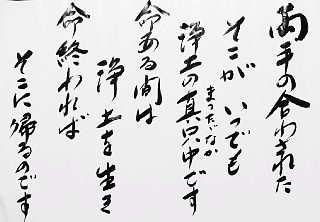 両手の合わされた
そこが いつでも
浄土の真只中です
まっただなか
命ある間は
浄土を生き
命終われば
そこに帰るのです